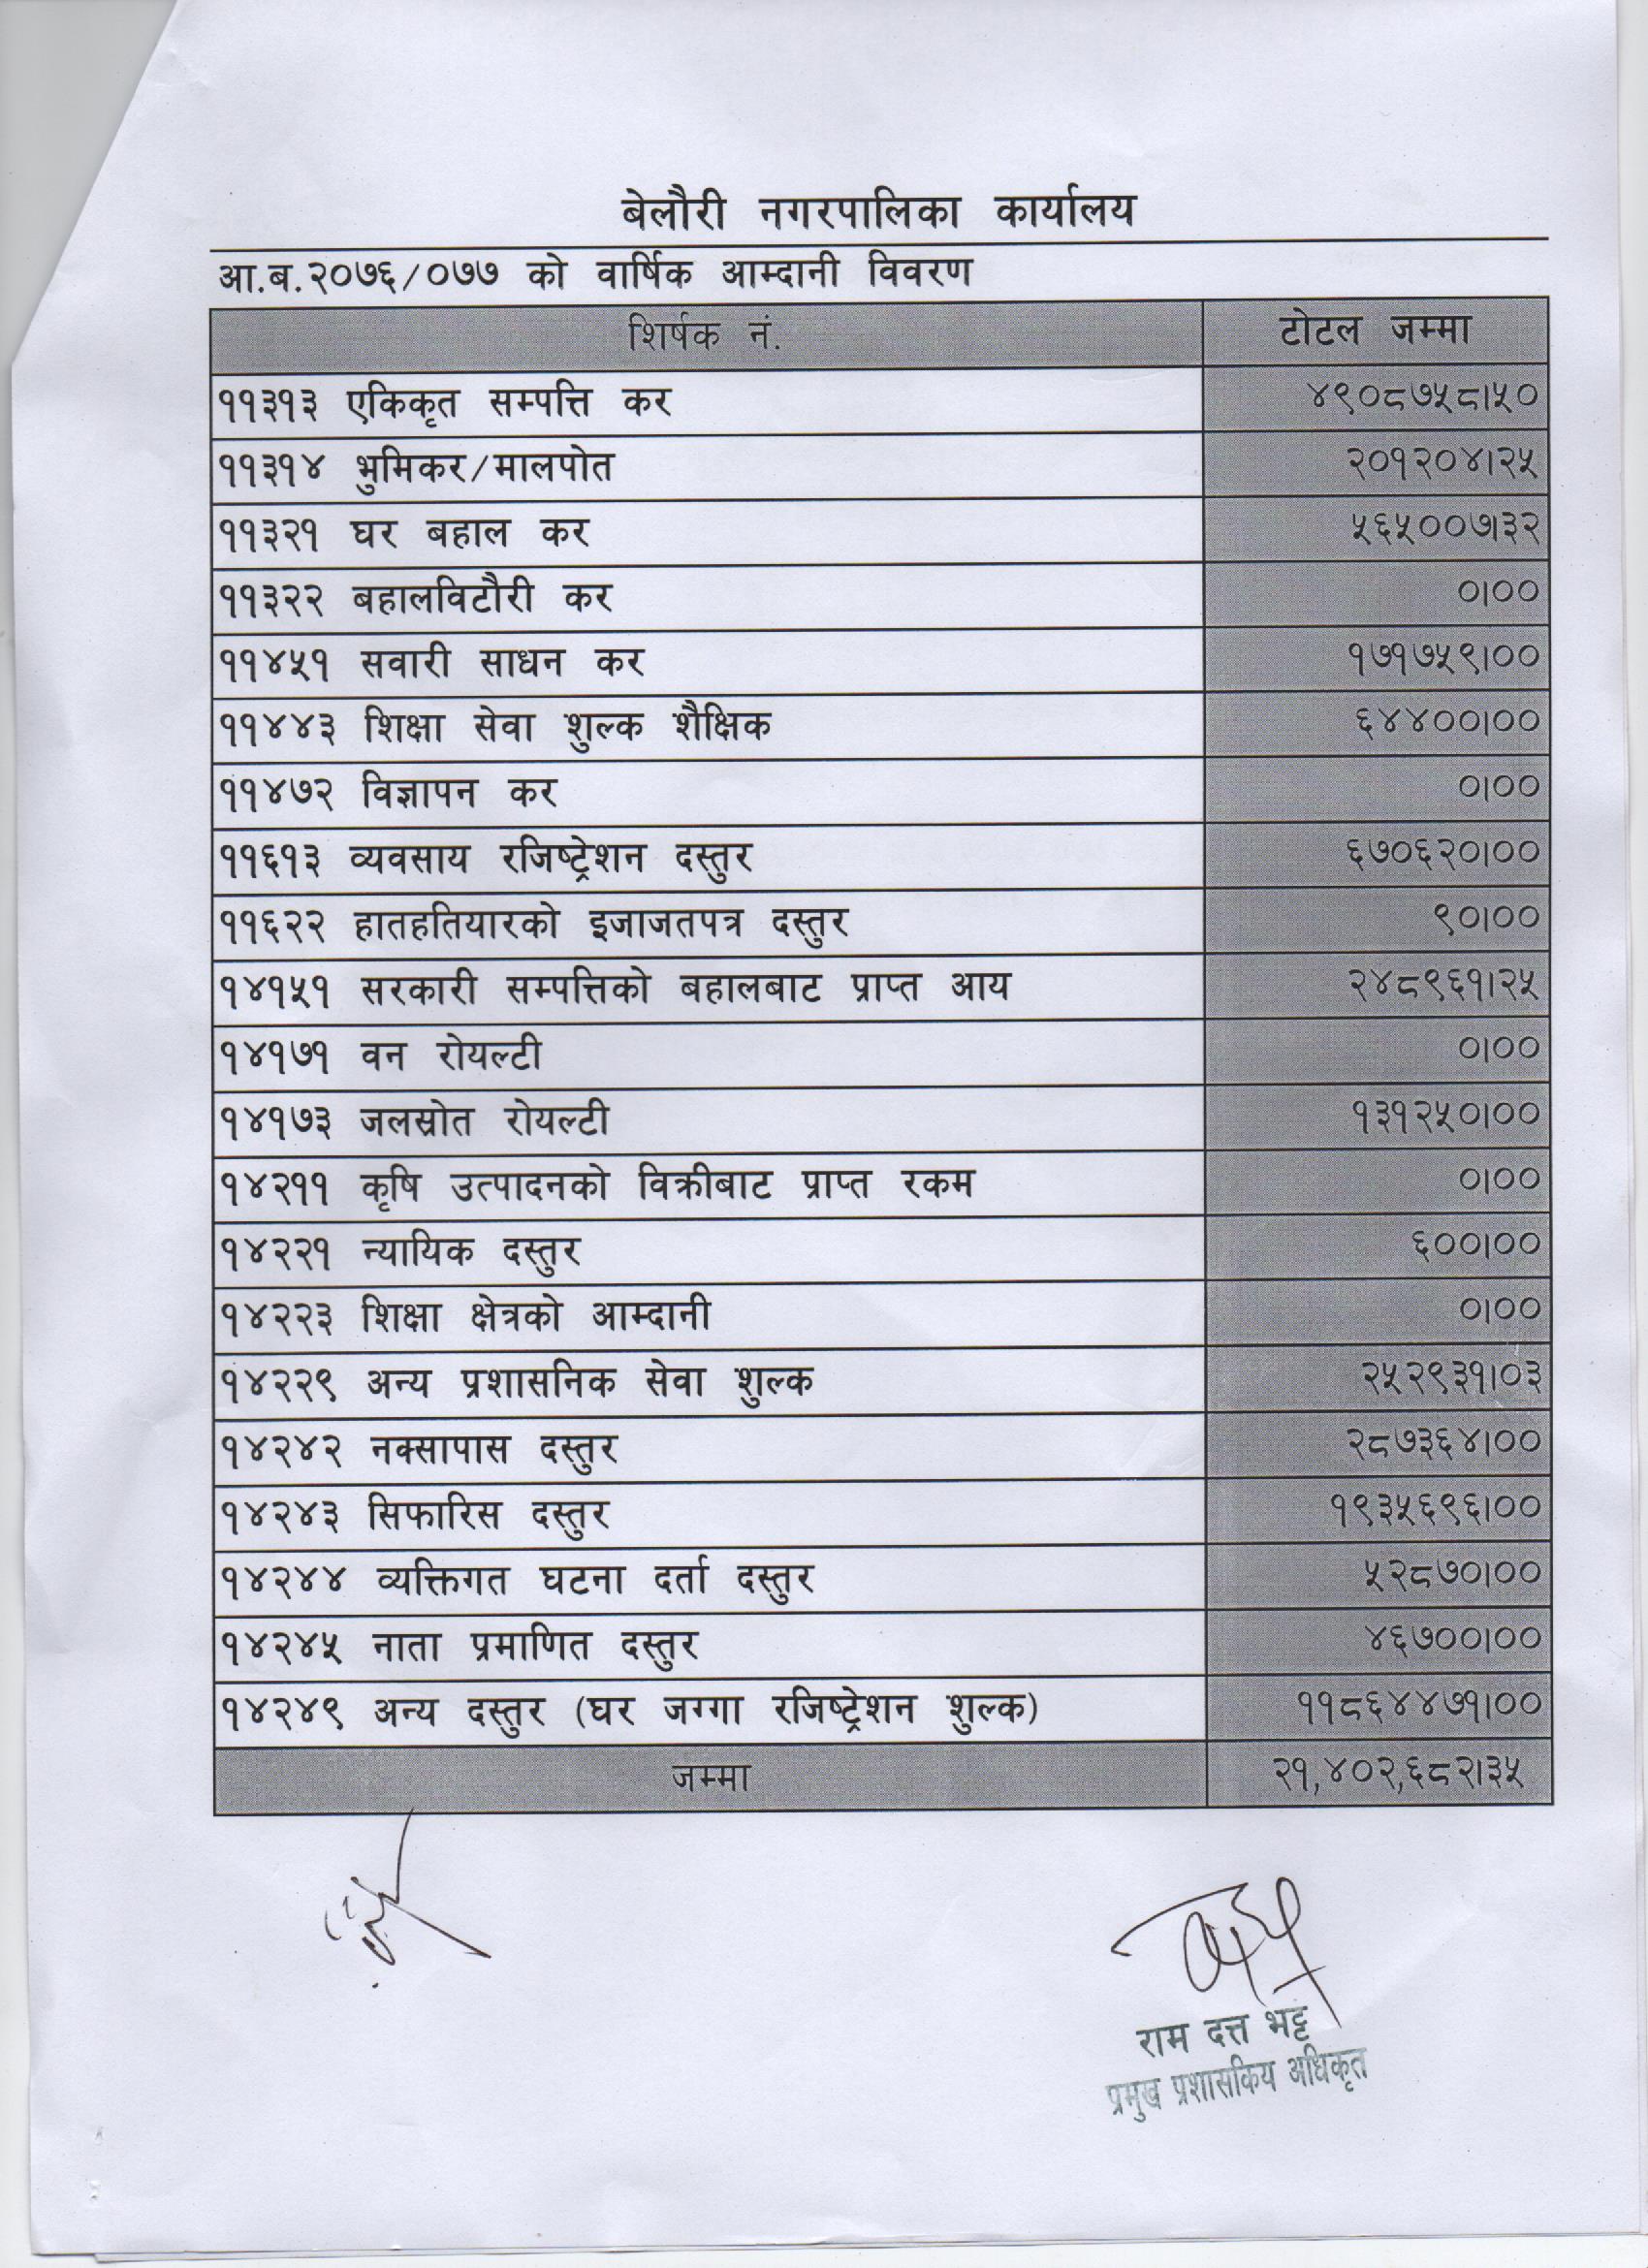 बेलौरी नगरपालिका कार्यालय
आ.ब.२०७६/०७७ को वार्षिक आम्दानी विवरण
शिर्षक नं. टोटल जम्मा
११३१३ एकिकृत सम्पत्ति कर ४९०८७५८।५०
११३१४ भुमिकर/मालपोत २०१२०४।२५
११३२१ घर बहाल कर ५६५००७।३२
११३२२ बहालविटौरी कर ०।००
११४५१ सवारी साधन कर १७१७५९।००
११४४३ शिक्षा सेवा शुल्क शैक्षिक ६४४००।००
११४७२ विज्ञापन कर ०।००
११६१३ व्यवसाय रजिष्ट्रेशन दस्तुर ६७०६२०।००
११६२२ हातहतियारको इजाजतपत्र दस्तुर ९०।००
१४१५१ सरकारी सम्पत्तिको बहालबाट प्राप्त आय २४८९६१।२५
१४१७१ वन रोयल्टी ०।००
१४१७३ जलस्रोत रोयल्टी १३१२५०।००
१४२११ कृषि उत्पादनको विक्रीबाट प्राप्त रकम ०।००
१४२२१ न्यायिक दस्तुर ६००।००
१४२२३ शिक्षा क्षेत्रको आम्दानी ०।००
१४२२९ अन्य प्रशासनिक सेवा शुल्क २५२९३१।०३
१४२४२ नक्सापास दस्तुर २८७३६४।००
१४२४३ सिफारिस दस्तुर १९३५६९६।००
१४२४४ व्यक्तिगत घटना दर्ता दस्तुर ५२८७०।००
१४२४५ नाता प्रमाणित दस्तुर ४६७००।००
१४२४९ अन्य दस्तुर (घर जग्गा रजिष्ट्रेशन शुल्क) ११८६४४७१।००
जम्मा २१,४०२,६८२।३५
राम दत्त भट्ट
प्रमुख प्रशासकिय अधिकृत